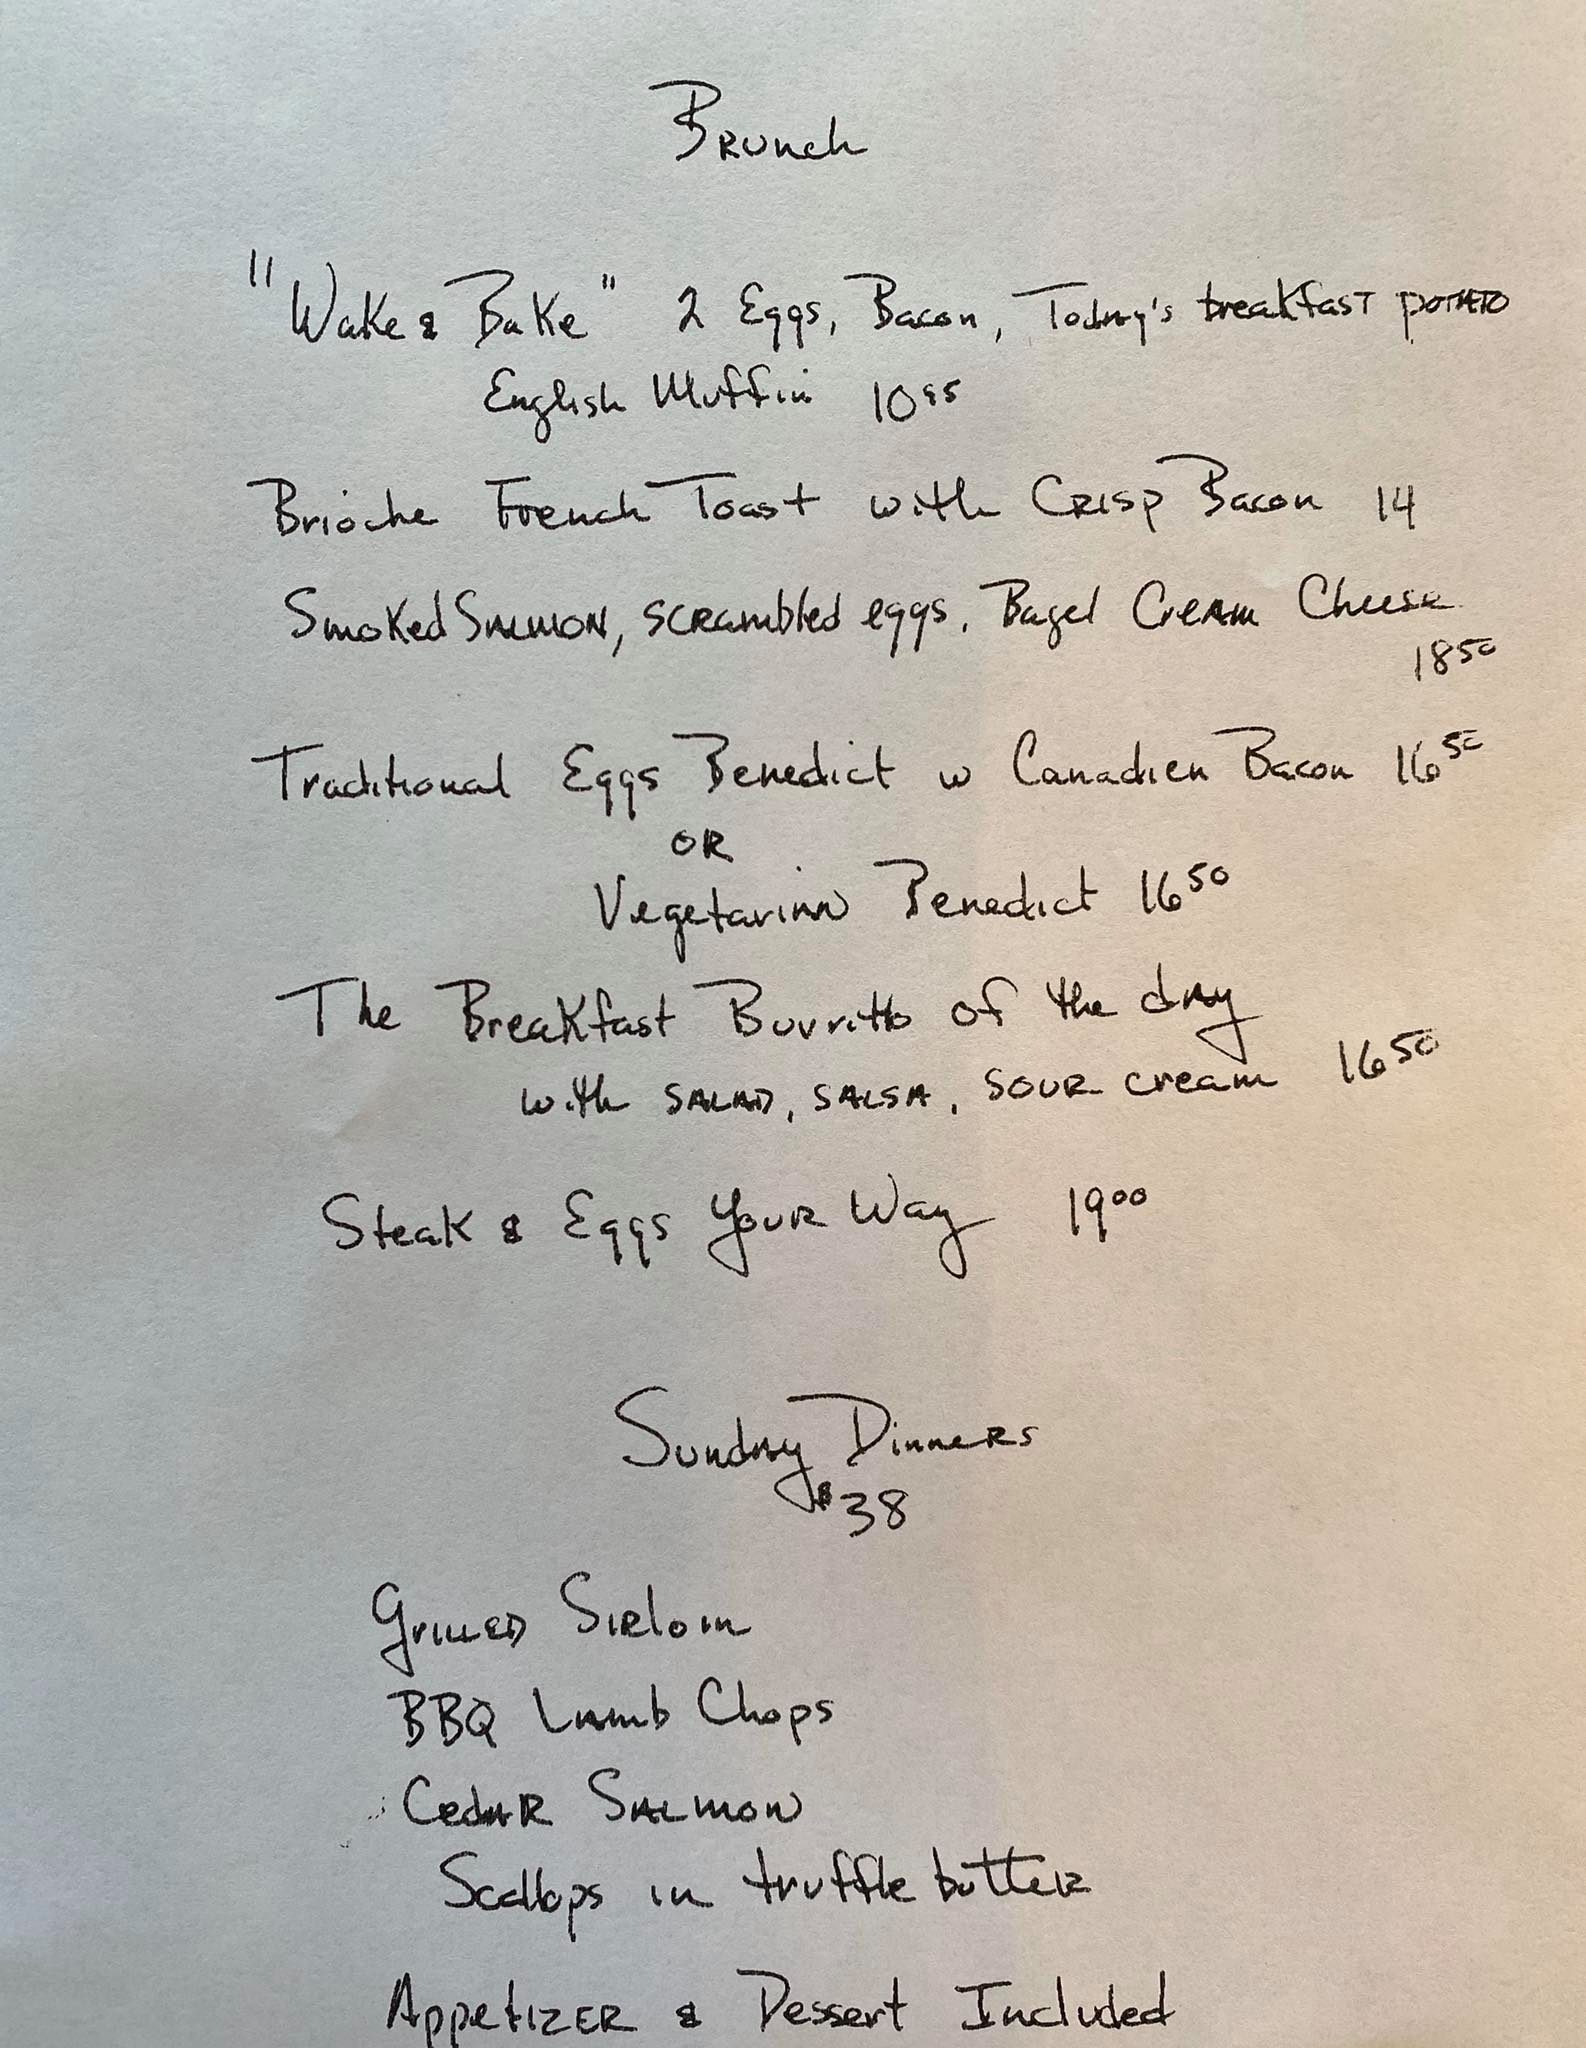 Brunch
"Wake & Bake" 2 Eggs, Bacon, Today's breakfast potato
English Muffin 10 95
Brioche French Toast with Crisp Bacon 14
Smoked Salmon, scrambled eggs, Bagel Cream Cheese
18 50
Traditional Eggs Benedict w Canadien Bacon 16 50
OR
Vegetarian Benedict 16 50
The Breakfast Burrito of the day
with salad, salsa, sour cream 16 50
Steak & Eggs Your Way 19 00
Sunday Dinners
$38
Grilled Sirloin
BBQ Lamb Chops
Cedar Salmon
Scallops in truffle butter
Appetizer & Dessert Included